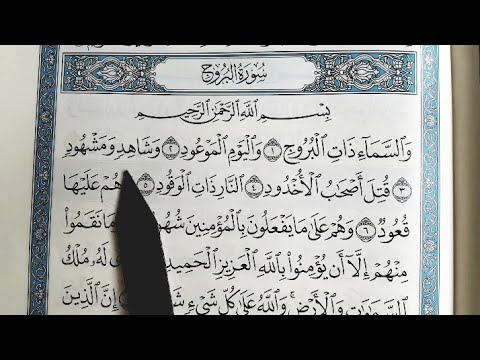 سُورَةُ البُرُوجِ
بِسْمِ اللَّهِ الرَّحْمَٰنِ الرَّحِيمِ
وَالسَّمَاءِ ذَاتِ الْبُرُوجِ ١ وَالْيَوْمِ الْمَوْعُودِ ٢ وَشَاهِدٍ وَمَشْهُودٍ
٣ قُتِلَ أَصْحَابُ الْأُخْدُودِ ٤ النَّارِ ذَاتِ الْوَقُودِ ٥ هُمْ عَلَيْهَا
قُعُودٌ ٦ وَهُمْ عَلَىٰ مَا يَفْعَلُونَ بِالْمُؤْمِنِينَ وَمَا نَقَمُوا
مِنْهُمْ إِلَّا أَن يُؤْمِنُوا بِاللَّهِ الْعَزِيزِ الْحَمِيدِ لَهُ مُلْكُ
السَّمَاوَاتِ وَالْأَرْضِ ۚ وَاللَّهُ عَلَىٰ كُلِّ شَيْءٍ إِنَّ الَّذِينَ